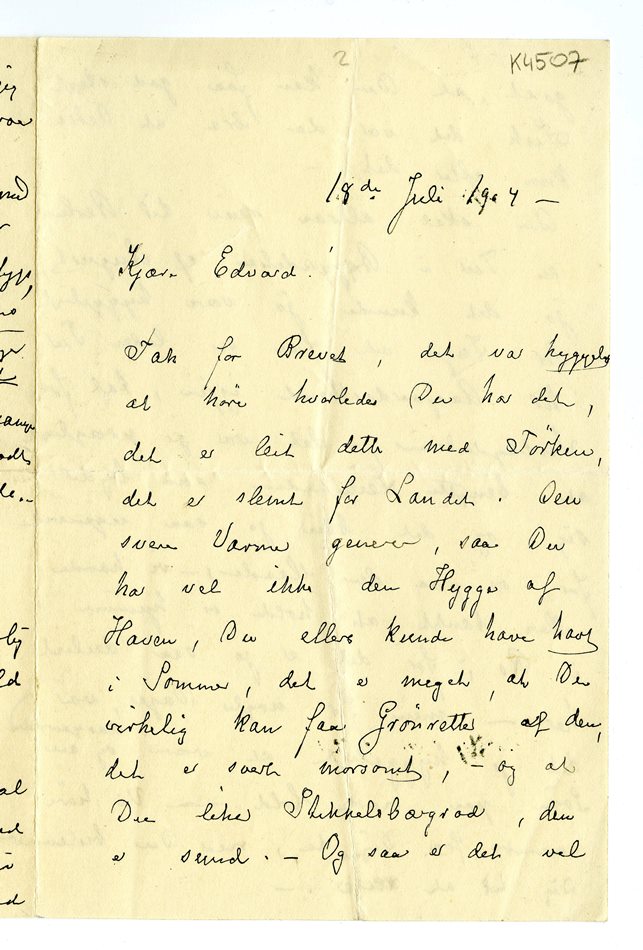 2
K4507
18de Juli 1904 –
Kjære Edvard!
Tak for Brevet, det var hyggeligt
at høre hvorledes Du har det,
det er leit dette med Tørken,
det er slemt for Landet. Den
svere Varme generer, saa Du
har vel ikke den Hygge af
Haven, Du ellers kunde have havt
i Sommer, det er meget, at Du
virkelig kan faa Grønretter af den,
det er svært morsomt, – og at
Du liker Stikkelsbærgrød, den
er sund. – Og saa er det vel